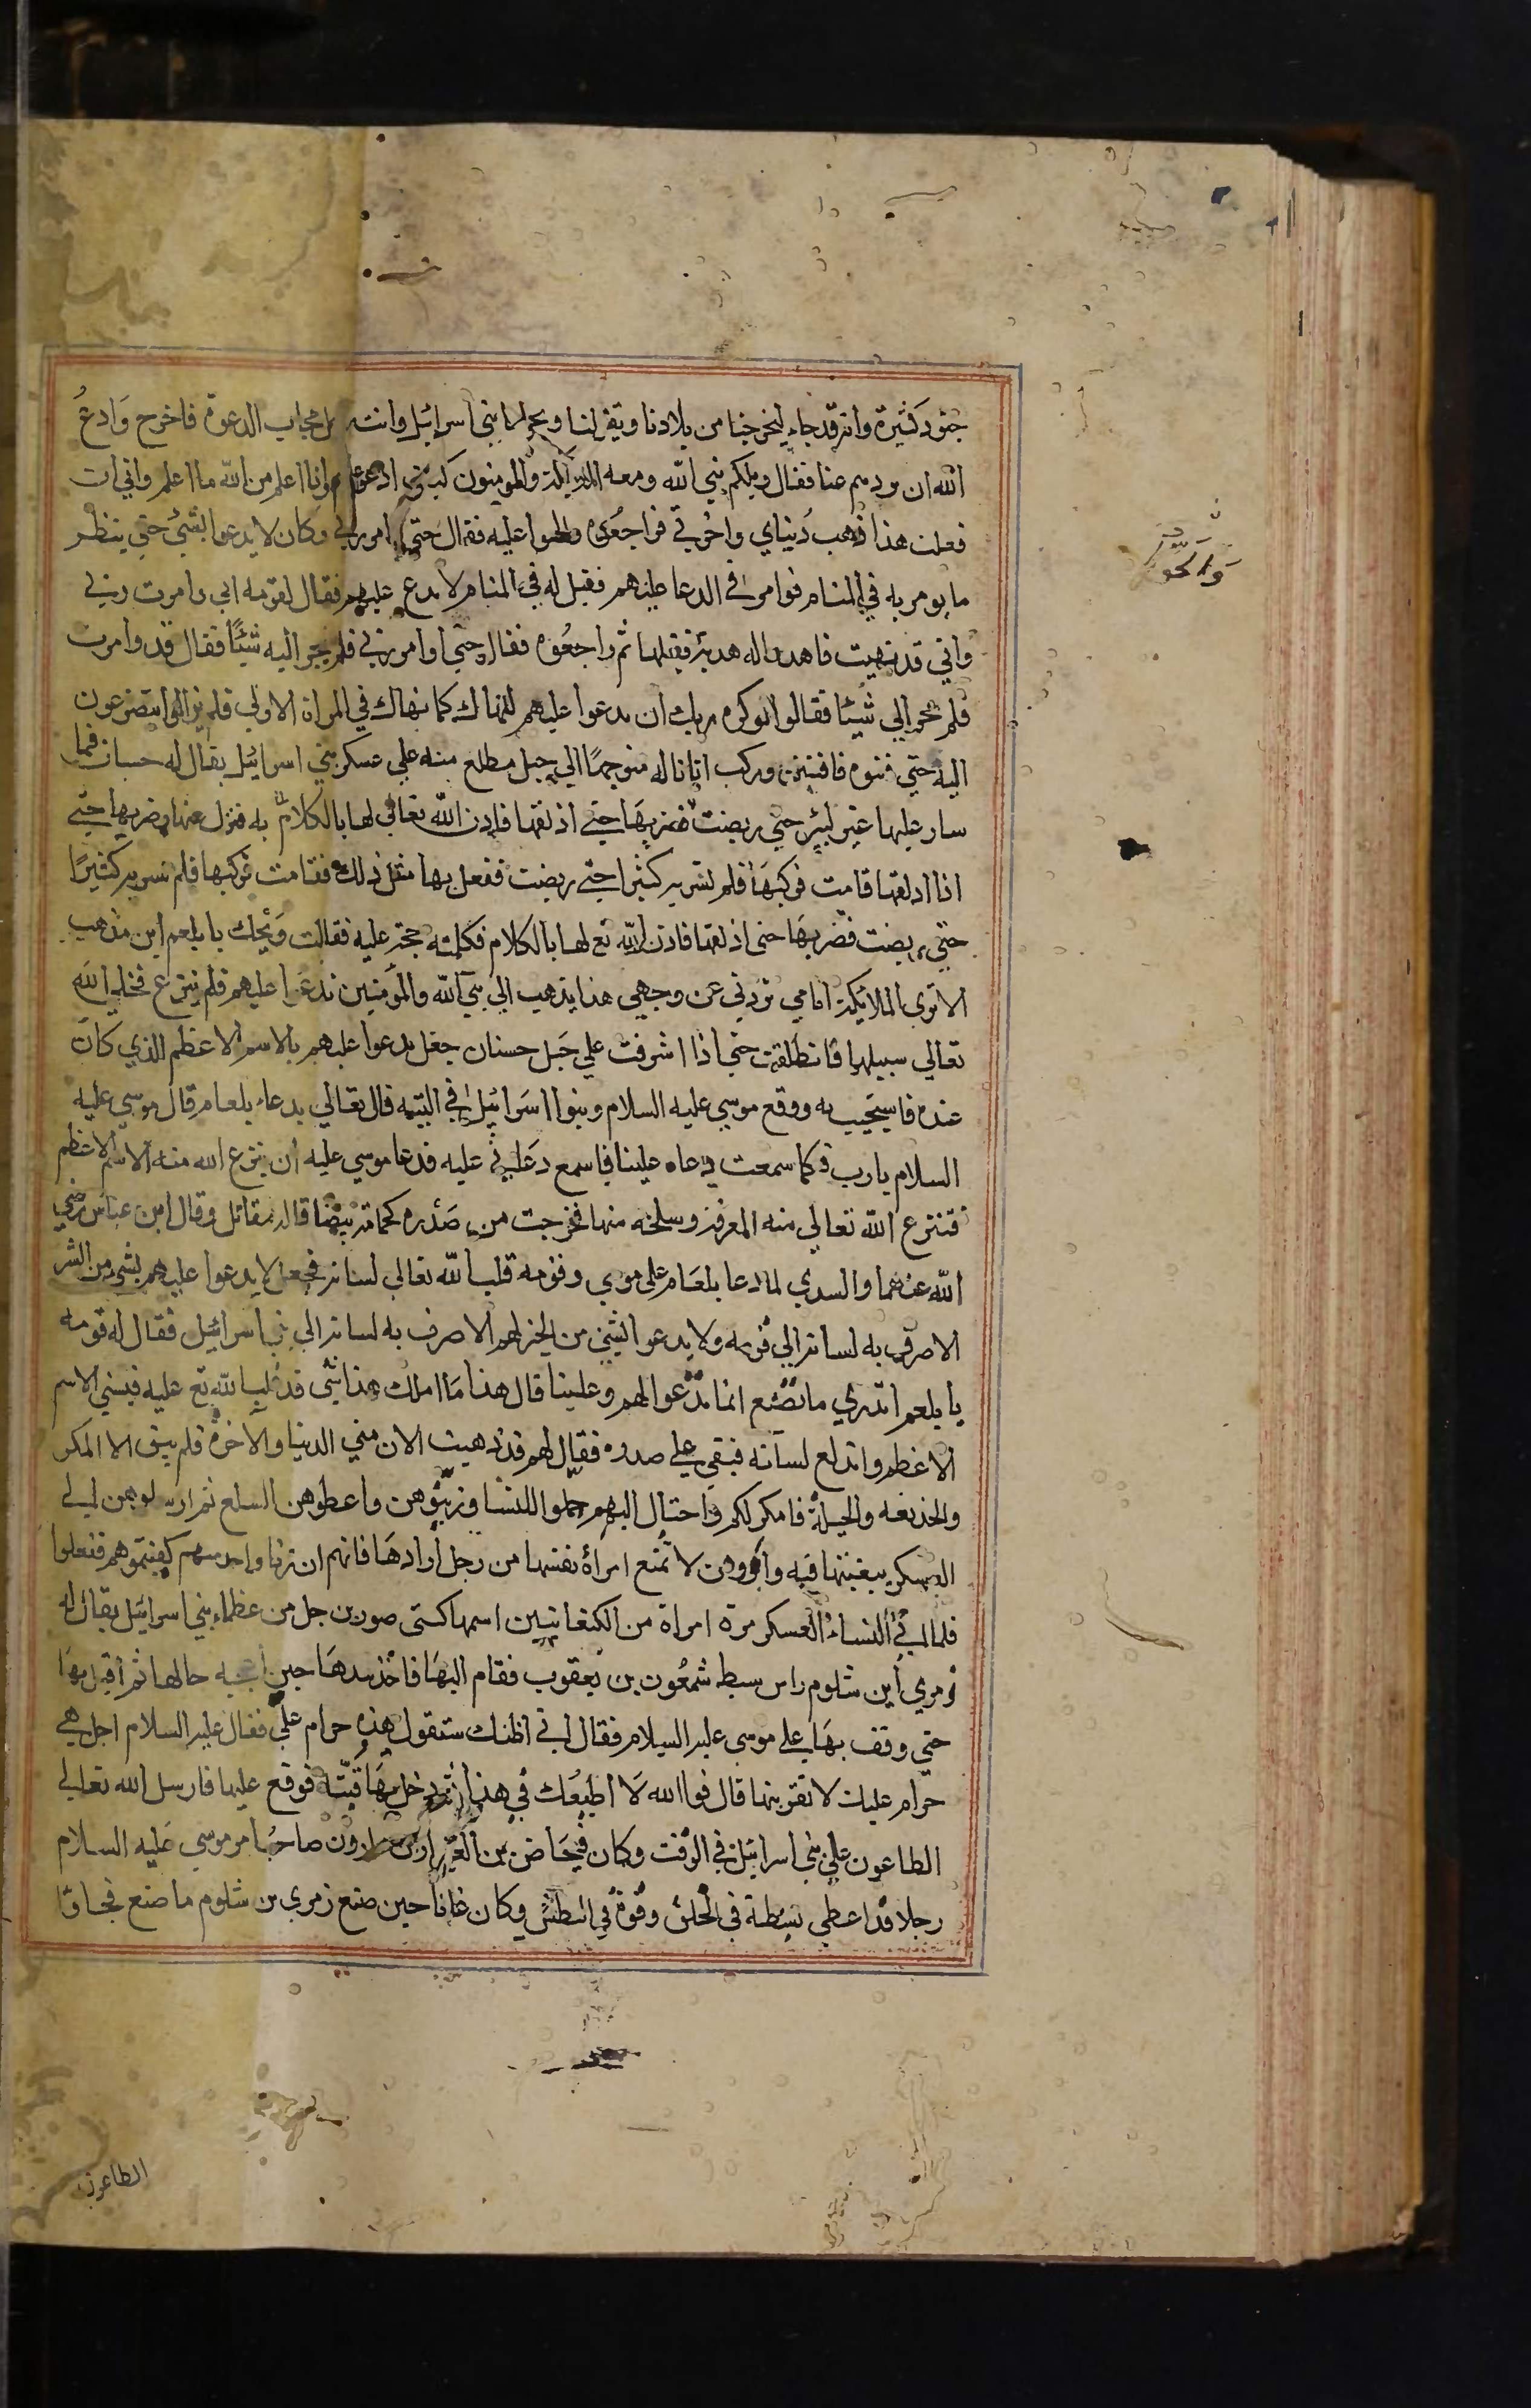 جنود كثيرة وانه قد جاء ليخرجنا من بلادنا ويقتلنا ويحولها بني اسرائيل وانت رجل مجاب الدعوة فاخرج وادع
الله ان يردهم عنا فقال ويلكم نبي الله ومعه الملائكة والمومنون كيف ادعو عليهم وانا اعلم من الله ما اعلم واني ان
فعلت هذا ذهب دنياي واخرتي فراجعوه والحوا عليه فقال حتى اوامر ربي وكان لا يدعوا لشيء حتي ينظر
ما يومر به في المنام فوامر في الدعا عليهم فقيل له في المنام لا تدع عليهم فقال لقومه اني وامرت ربي
واني قد نهيت فاهدوا له هدية فقبلها ثم راجعوه فقال حتي اوامر ربي فلم يجر اليه شيئا فقال قد وامرت
فلم يجر الي شيئا فقالوا لو كره ربك ان تدعوا عليهم لنهاك كما نهاك في المراة الاولي فلم يزالوا يتضرعون
اليه حتي فتنوه فافتتن وركب اتانا له متوجها الي جبل مطلع منه علي عسكر بني اسرائيل يقال له حسبان فما
سار عليها غير كثير حتي ربضت فضربها حتي اذلقها فاذن الله تعالي لها بالكلام به فنزل عنها وضربها حتي
اذا اذلقها قامت فركبها فلم تسر به كثيرا حتي ربضت ففعل بها مثل ذلك فقامت فركبها فلم تسر به كثيرا
حتي ربضت فضربها حتي اذلقها فاذن الله تع لها بالكلام فكلمته حجة عليه فقالت ويحك يا بلعم اين تذهب
الا تري الملائكة امامي تردني عن وجهي هذا يذهب الي نبي الله والمؤمنين تدعوا عليهم فلم ينزع فخلي الله
تعالي سبيلها فانطلقت حتي اذا اشرفت علي جبل حسنان جعل يدعوا عليهم بالاسم الاعظم الذي كان
عنده فاستجيب له ووقع موسي عليه السلام وبنوا اسرائيل في التيه قال تعالي بدعاء بلعام قال موسي عليه
السلام يا رب فكما سمعت دعاه علينا فاسمع دعائي عليه فدعا موسي عليه ان ينزع الله منه الاسم الاعظم
فنزع الله تعالي منه المعرفة وسلخه منها فخرجت من صدره كحمامة بيضا قاله مقاتل وقال ابن عباس رضي
الله عنهما والسدي لما دعا بلعام علي موسي وقومه قلب الله تعالي لسانه فجعل لا يدعوا عليهم بشيء من الشر
الا صرف به لسانه الي قومه ولا يدعوا بشيء من الخير لهم الا صرف به لسانه الي بني اسرائيل فقال له قومه
يا بلعم اتدري ما تصنع انما تدعوا لهم وعلينا قال هذا ما املك هذا شي قد غلب الله تع عليه فنسي الاسم
الاعظم واندلع لسانه فبقي علي صدره فقال لهم قد ذهبت الان مني الدنيا والاخرة فلم يبق الا المكر
والخديعه والحيلة فامكر لكم واحتال اليهم جملوا النسا وزينوهن واعطوهن السلع ثم ارسلوهن الي
العسكر يبعنها فيه وامروهن لا تمنع امراة نفسها من رجل ارادها فانهم ان زنا واحد منهم كفيتموهم ففعلوا
فلما اتي النساء العسكر مرة امراة من الكنعانيين اسمها كستي صور برجل من عظماء بني اسرائيل يقال له
زمري ابن شلوم راس سبط شمعون بن يعقوب فقام اليها فاخذ بيدها حين اعجبه حالها ثم اقبل بها
حتي وقف بها علي موسي عليه السلام فقال اني اظنك ستقول هذه حرام علي فقال عليه السلام اجل هي
حرام عليك لا تقربها قال فوالله لا اطيعك في هذا ثم دخل بها قبته فوقع عليها فارسل الله تعالي
الطاعون علي بني اسرائيل في الوقت وكان فيحاض بن العيزار بن هارون صاحب امر موسي عليه السلام
رجلا قد اعطي بسطة في الخلق وقوة في البطش وكان غائبا حين صنع زمري بن شلوم ما صنع فجا و
الطاعون